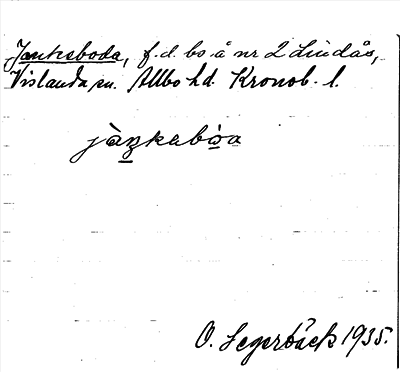 Janksboda, f.d. bs å nr 2 Lindås,
Vislanda sn. Allbo hd. Kronob. l.
jàŋkabo̯a
O. Segerbäck 1935.